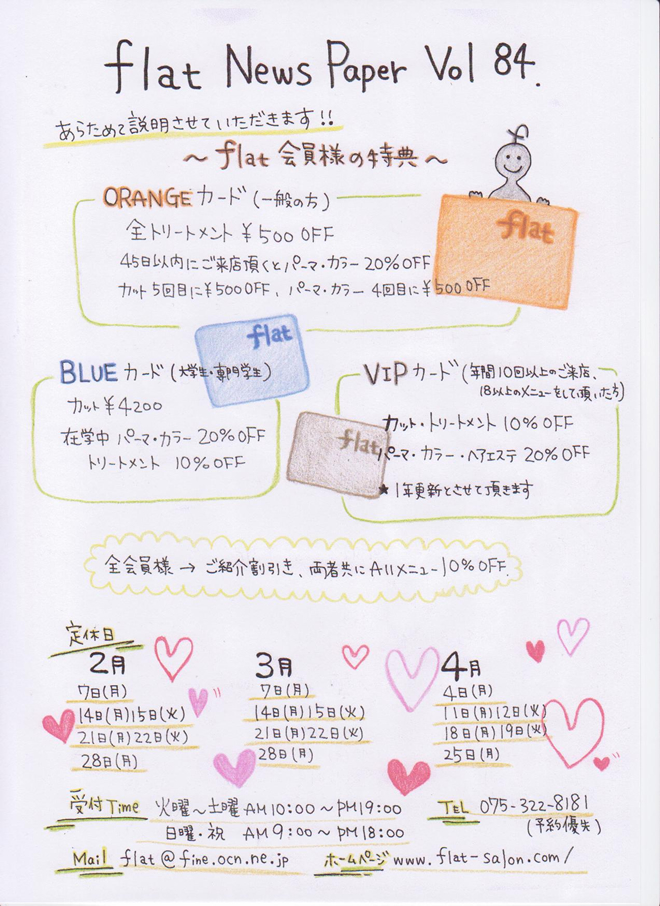 flat News Paper Vol 84.
あらためて説明させていただきます!!
～flat 会員様の特典～
ORANGE カード (一般の方)
flat
全トリートメント ¥500 OFF
45日以内にご来店頂くとパーマ・カラー 20%OFF
カット 5回目に¥500OFF、パーマ・カラー 4回目に¥500OFF
flat
BLUE カード (大学生・専門学生)
カット ¥4200
在学中 パーマ・カラー 20%OFF
トリートメント 10%OFF
VIP カード (年間10回以上のご来店、
18以上のメニューをして頂いた方)
flat
カット・トリートメント 10%OFF
パーマ・カラー・ヘアエステ 20%OFF
★1年更新とさせて頂きます
全会員様 → ご紹介割引き、両者共にAllメニュー10%OFF.
定休日
2月
7日(月)
14日(月)15日(火)
21日(月)22日(火)
28日(月)
3月
7日(月)
14日(月)15日(火)
21日(月)22日(火)
28日(月)
4月
4日(月)
11日(月)12日(火)
18日(月)19日(火)
25日(月)
受付Time 火曜～土曜 AM10:00～PM19:00
日曜・祝 AM9:00～PM18:00
TEL 075-322-8181
(予約優先)
Mail flat@fine.ocn.ne.jp ホームページ www.flat-salon.com/